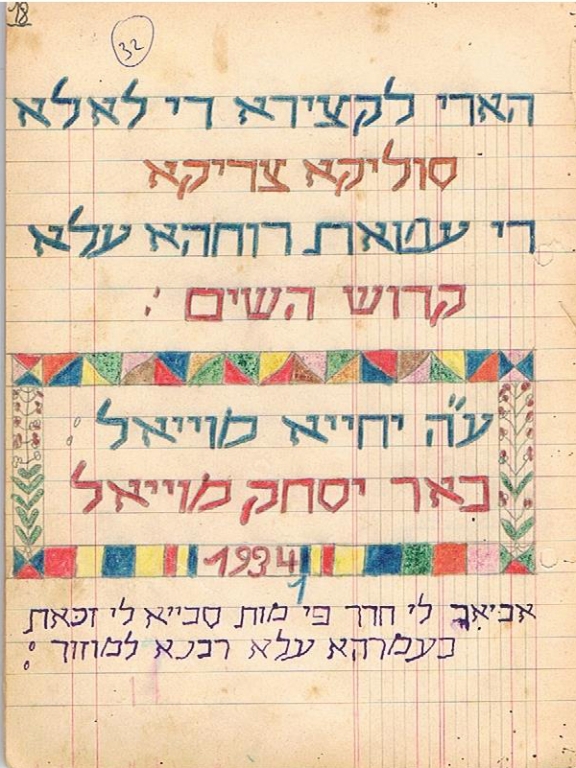 18
32
האדי לקצידא די לאלא
סוליקא צדיקא
די עטאת רוחהא עלא
קדוש השים :
ע״ה יחייא מוייאל :
באר יסחק מוייאל
1934
1
לי פי מות סבייא לי
בעמרהא עלא רבנא למוזוד :